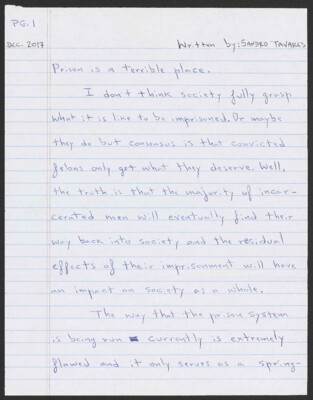 PG. 1
DEC. 2017 Written by: SANDRO TAVARES
Prison is a terrible place.
I don't think society fully grasp
what it is like to be imprisoned. Or maybe
they do but consensus is that convicted
felons only get what they deserve. Well,
the truth is that the majority of incar-
cerated men will eventually find their
way back into society and the residual
effects of their imprisonment will have
an impact on society as a whole.
The way that the prison system
is being run currently is extremely
flawed and it only serves as a spring-